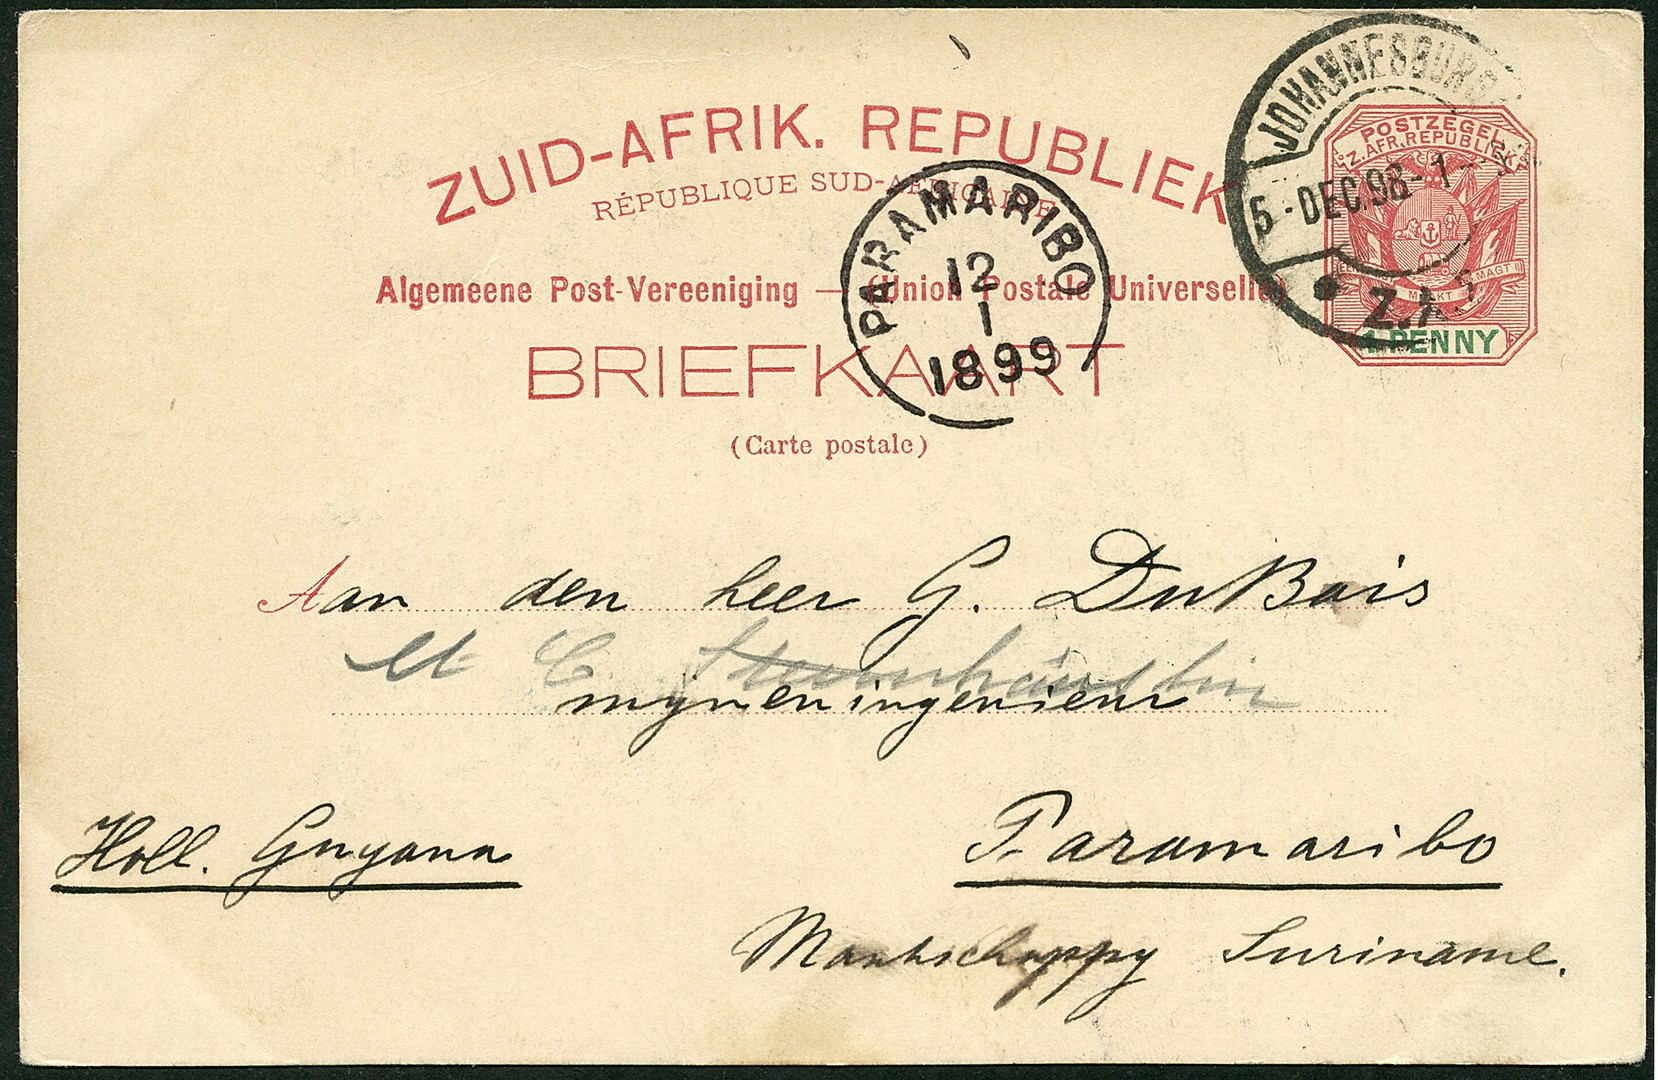 ZUID-AFRIK. REPUBLIEK
RÉPUBLIQUE SUD-AFRICAINE
Algemeene Post-Vereeniging — (Union Postale Universelle)
BRIEFKAART
(Carte postale)
JOHANNESBURG
5-DEC.98-1
Z.A.
POSTZEGEL
Z. AFR. REPUBLIEK
MAAKT MAGT
1 PENNY
PARAMARIBO
12
1
1899
Aan den heer G. DuBois
C.
mynen ingenieur
Holl. Guyana
Paramaribo
Maatschappy Suriname.